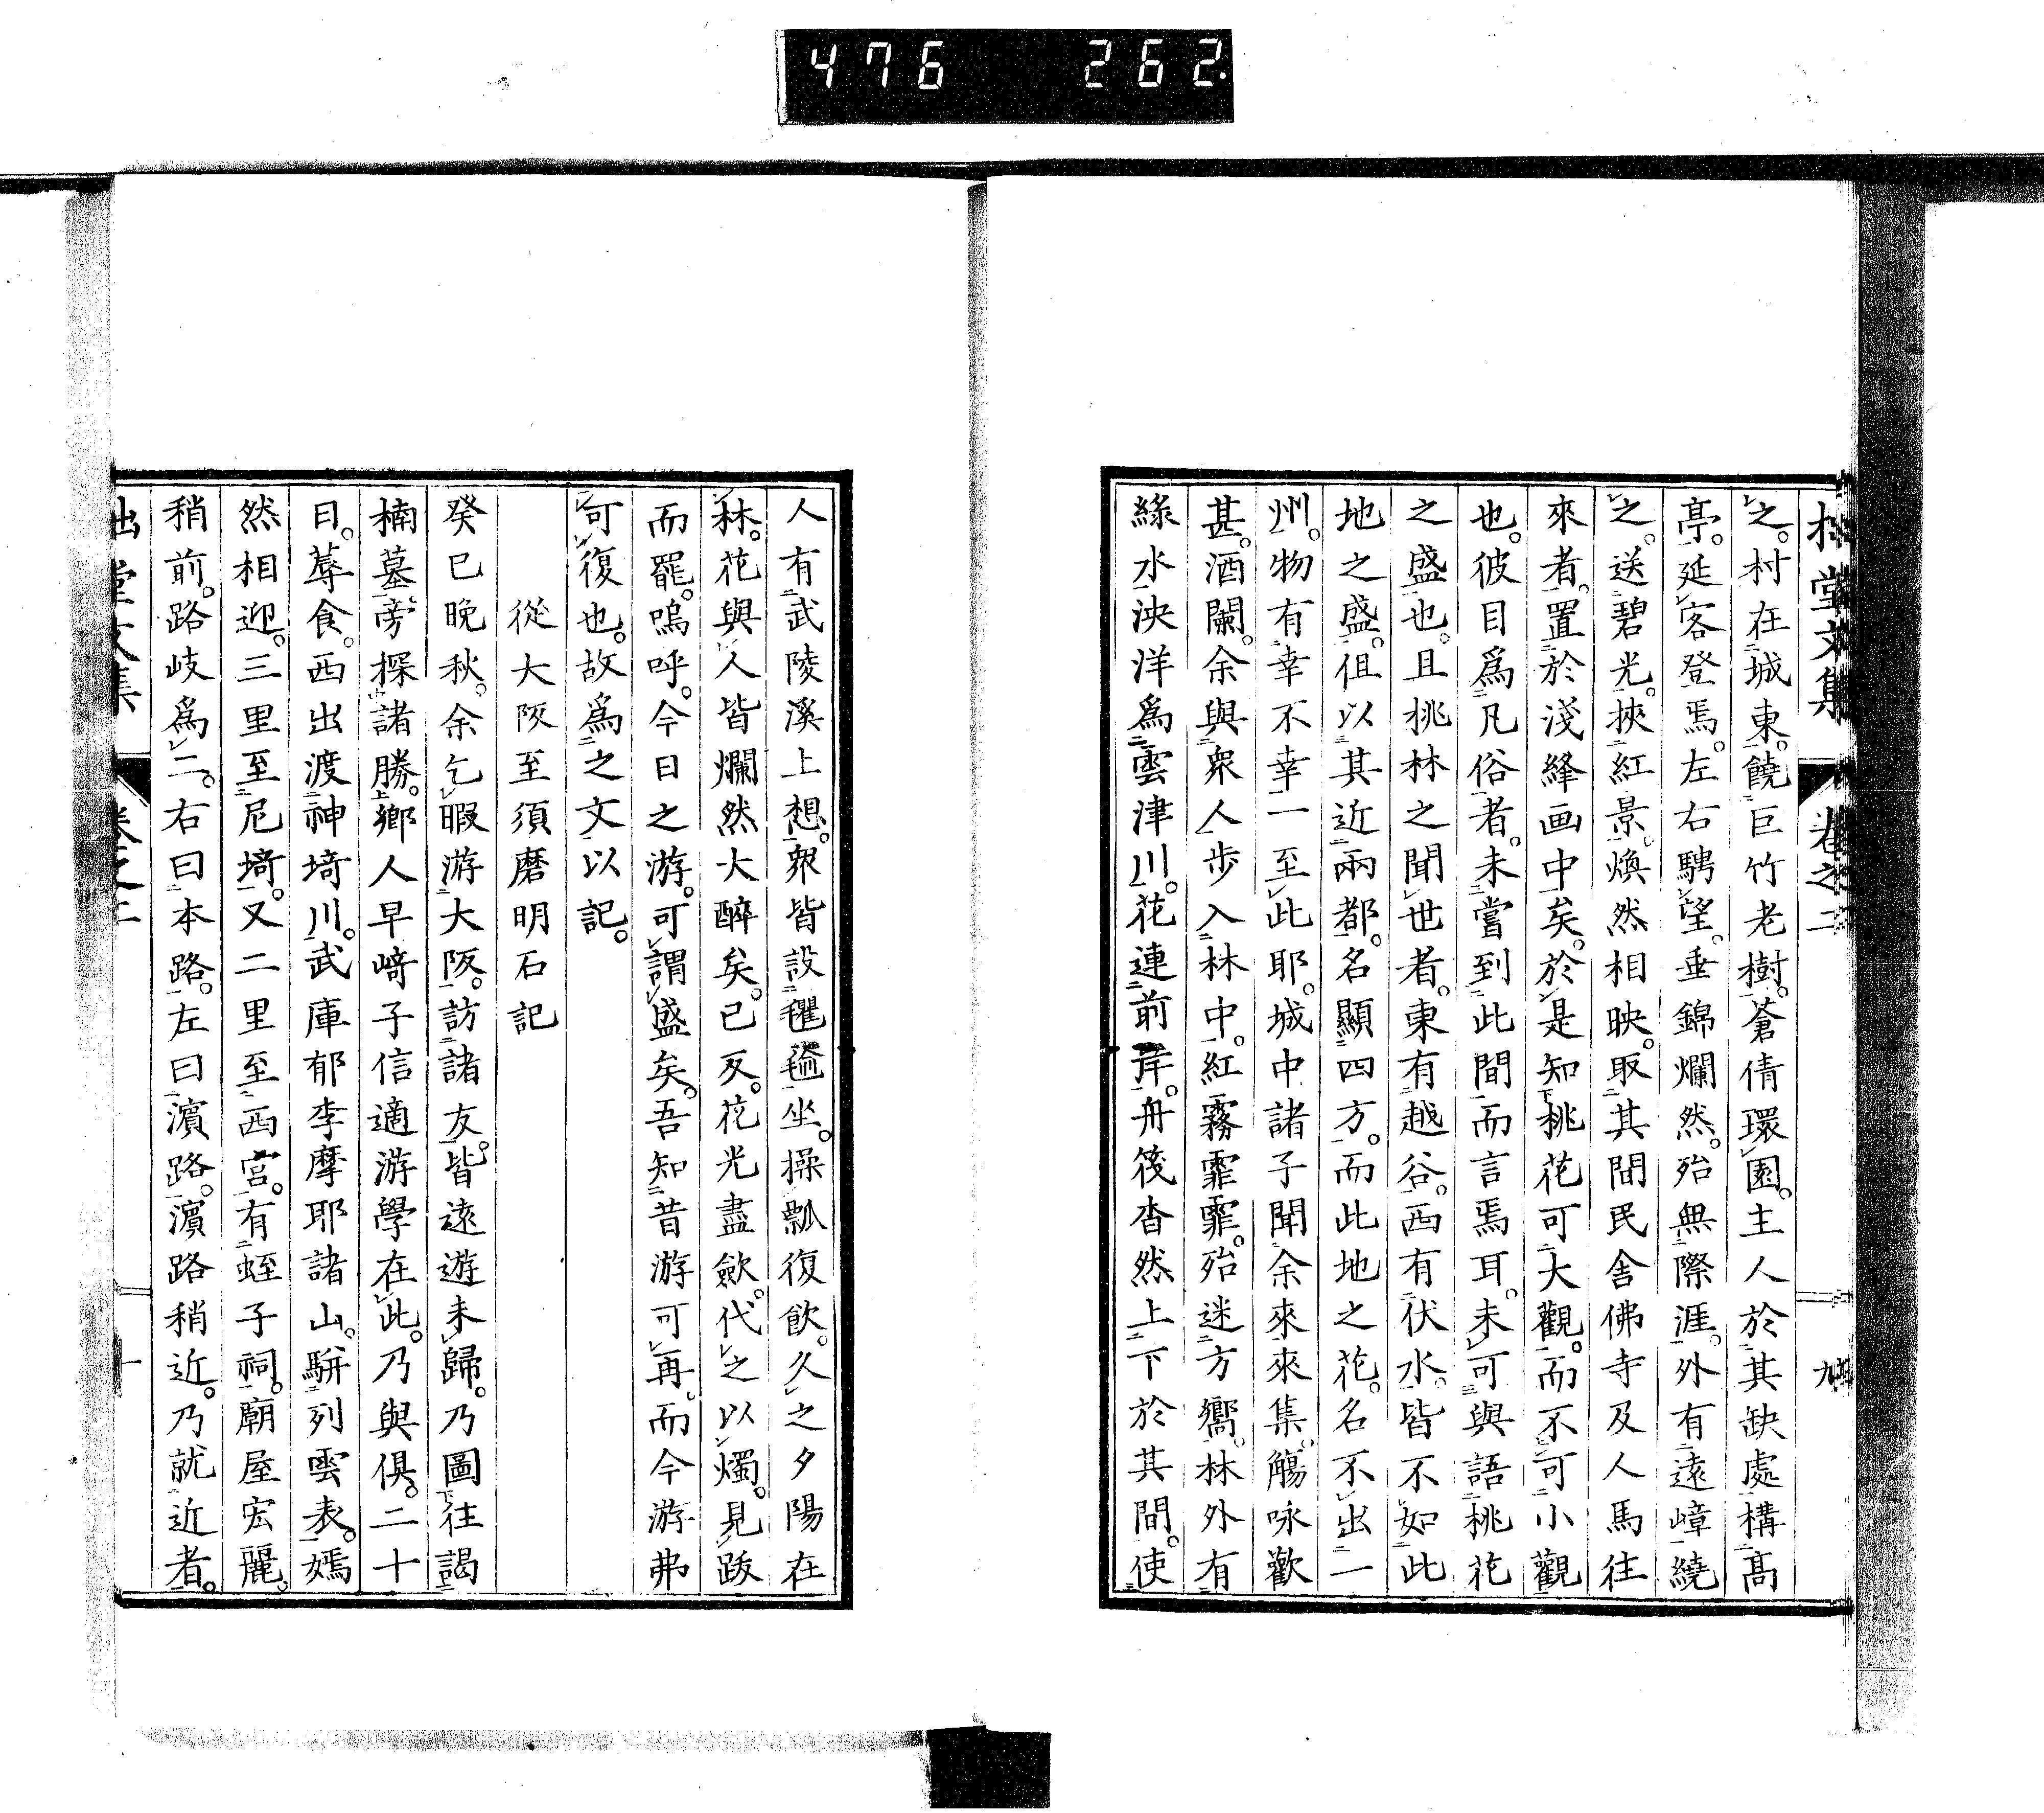 476 262
拙堂文集 卷之二 九
之。村在城東。饒巨竹老樹。蒼倩環園。主人於其缺處構高
亭。延客登焉。左右騁望。垂錦爛然。殆無際涯。外有遠嶂繞
之。送碧光。挾紅景。煥然相映。取其間民舍佛寺及人馬往
來者。置於淺絳画中矣。於是知桃花可大觀。而不可小觀
也。彼目爲凡俗者。未嘗到此間而言焉耳。未可與語桃花
之盛也。且桃林之聞世者。東有越谷。西有伏水。皆不如此
地之盛。但以其近兩都。名顯四方。而此地之花。名不出一
州。物有幸不幸一至此耶。城中諸子聞余來來集。觴咏歡
甚。酒闌。余與衆人步入林中。紅霧霏霏。殆迷方嚮。林外有
綠水泱洋爲雲津川。花連前岸。舟筏杳然上下於其間。使
人有武陵溪上想。衆皆設氍毹坐。操瓢復飮。久之夕陽在
林。花與人皆爛然大醉矣。已反。花光盡歛。代之以燭。見跋
而罷。嗚呼。今日之游。可謂盛矣。吾知昔游可再。而今游弗
可復也。故爲之文以記。
從大阪至須磨明石記
癸巳晚秋。余乞暇游大阪。訪諸友。皆遠遊未歸。乃圖往謁
楠墓。旁探諸勝。鄉人早﨑子信適游學在此。乃與俱。二十
日。蓐食。西出渡神埼川。武庫郁李摩耶諸山。駢列雲表。嫣
然相迎。三里至尼埼。又二里至西宮。有蛭子祠。廟屋宏麗。
稍前。路岐爲二。右曰本路。左曰濵路。濵路稍近。乃就近者。
拙堂文集 卷之二 十